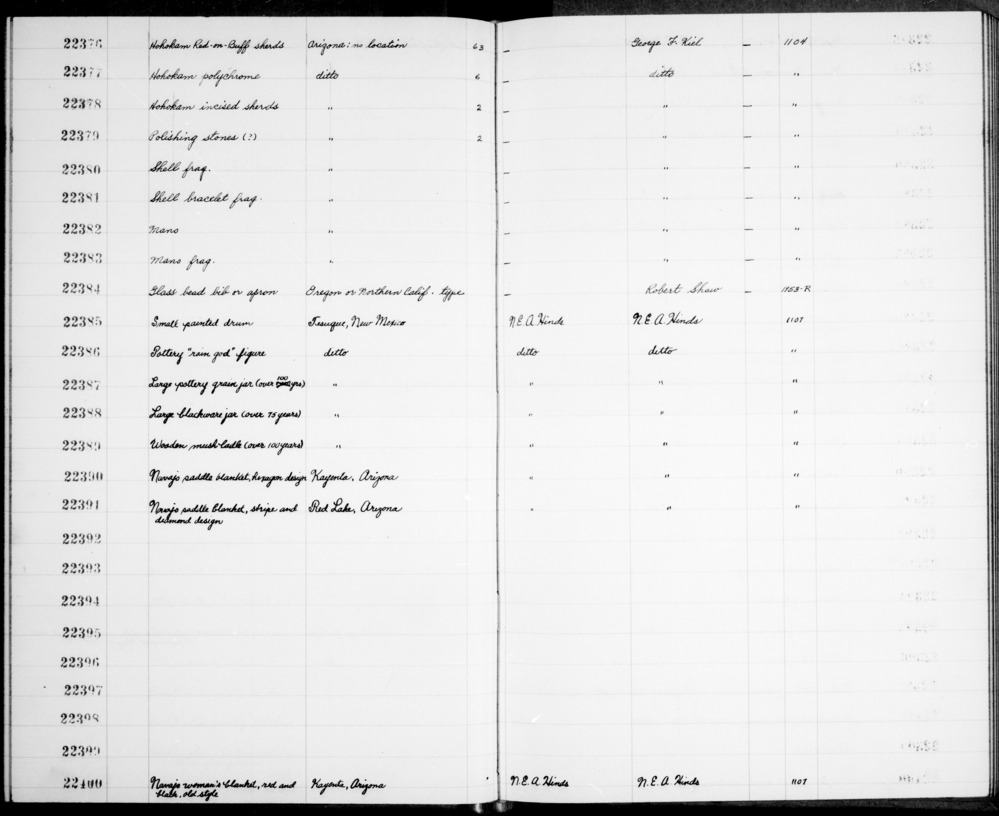 22376 Hohokam Red-on-Buff sherds Arizona: no location 63 – George F. Kiel – 1104
22377 Hohokam polychrome ditto 6 – ditto – "
22378 Hohokam incised sherds " 2 – " – "
22379 Polishing stones (?) " 2 – " – "
22380 Shell frag. " – " – "
22381 Shell bracelet frag. " – " – "
22382 Mano " – " – "
22383 Mano frag. " – " – "
22384 Glass bead bib or apron Oregon or Northern Calif. type – Robert Shaw – 1153-R
22385 Small painted drum Tesuque, New Mexico N.E.A. Hinds N.E.A. Hinds 1107
22386 Pottery "rain god" figure ditto ditto ditto "
22387 Large pottery grain jar (over 100 yrs) " " " "
22388 Large blackware jar (over 75 years) " " " "
22389 Wooden mush ladle (over 100 years) " " " "
22390 Navajo saddle blanket, hexagon design Kayenta, Arizona " " "
22391 Navajo saddle blanket, stripe and Red Lake, Arizona " " "
diamond design
22392
22393
22394
22395
22396
22397
22398
22399
22400 Navajo woman's blanket, red and Kayenta, Arizona N.E.A. Hinds N.E.A. Hinds 1107
black, old style